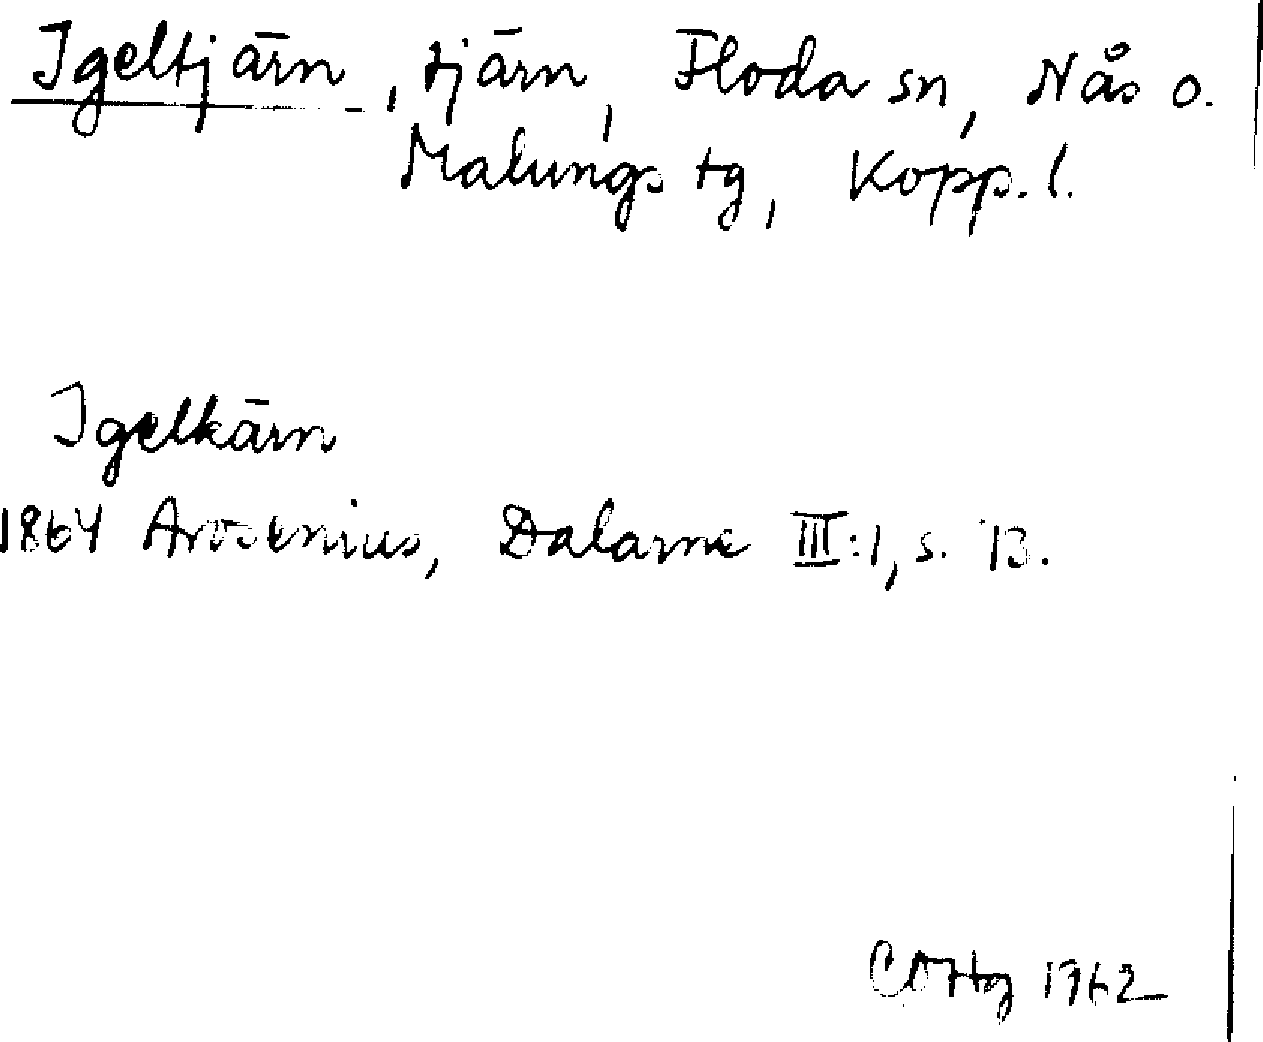 Igeltjärn, tjärn, Floda sn, Nås o.
Malungs tg, Kopp. l.
Igelkärn
1864 Arosenius, Dalarne III:1, s. 13.
1962